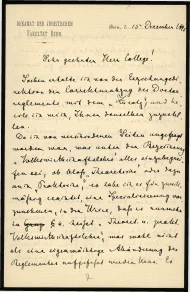 DEKANAT DER JURISTISCHEN
FAKULTÄT BERN.
Bern, d. 15 Dezember
Sehr geehrter Herr College!
Soeben erhalte ich von der Erziehungsdi-
rektion den Correkturabzug des Doctor
reglements mit dem
eile mich, Ihnen denselben zuzustel-
len.
Da ich von verschiedenen Seiten angefragt
worden war, was unter der Bezeichnung
"Volkswirthschaftslehre" alles einzubegrei-
fen sei, ob bloss Theoretische oder dazu
auch Praktische, so habe ich es für zweck-
mässig erachtet, eine Specialisierung vor-
zunehmen, in der Weise, dass es nunmehr
heisst: Theoret. u. prakt.
Volkswirthschaftslehre", was wohl nicht
als eine eigenmächtige Abänderung des
Reglementes aufgefasst werden kann. Es